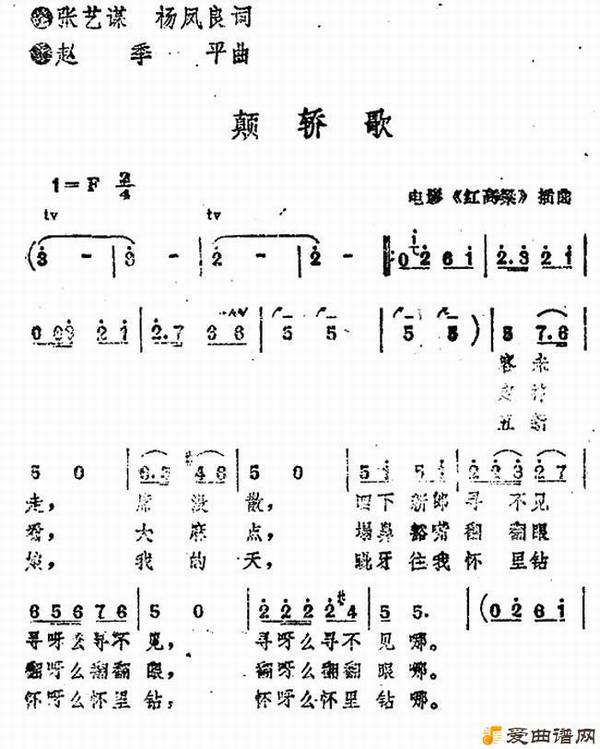 张艺谋 杨凤良词
赵季平曲
颠轿歌
1=F 2/4
电影《红高粱》插曲
tv tv
(3 - | 3 - | 2 - | 2 - |: 0 2 6 1 | 2.3 2 1 |
0 03 2 1 | 2.7 6 6 | 5 5 | 5 5 ) | 5 7.6 |
客未
丑新
5 0 | 6.5 #4 6 | 5 0 | 5 1 5 1 | 2 2 3 2 7 |
走, 席没散, 四下新郎寻不见
看, 大麻点, 塌鼻豁嘴翻翻眼
娘, 我的天, 牙往我怀里钻
6 5 6 7 6 | 5 0 | 2 2 2 2 #4 | 5 5. | (0 2 6 1 |
寻呀么寻不见, 寻呀么寻不见哪。
翻呀么翻翻眼, 翻呀么翻翻眼哪。
怀呀么怀里钻, 怀呀么怀里钻哪。
爱曲谱网